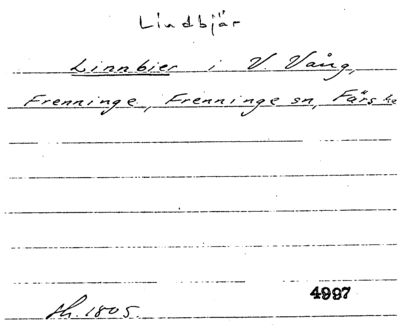 Lindbjär
Linnbier i V. Vång,
Frenninge, Frenninge sn, Färs hd
Sk. 1805.
4997